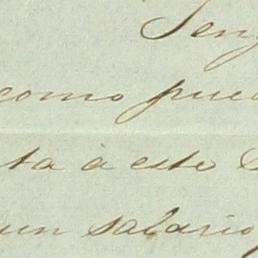 Teng
como pued
ta à este
un salario,